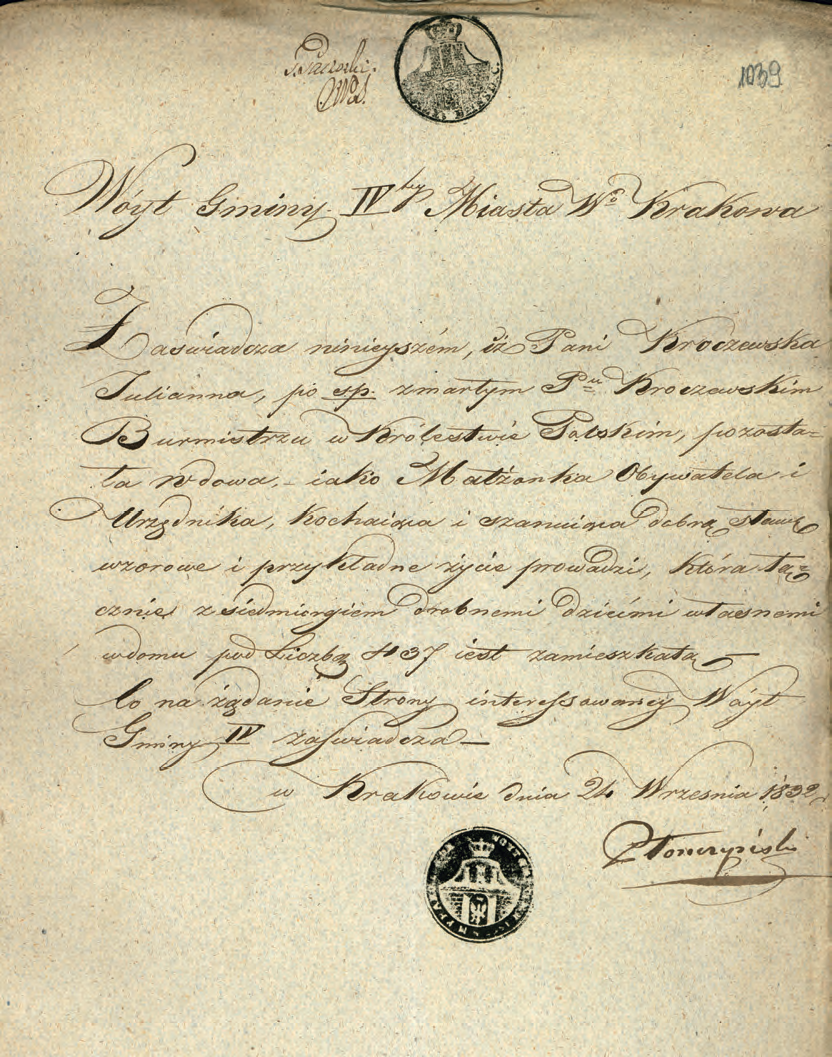 1039
Wóyt Gminy IV tey Miasta Wo Krakowa
Zaświadcza ninieyszém, iż Pani Kroczewska
Julianna, po śp. zmarłym Pnu Kroczewskim
Burmistrzu w Królestwie Polskim, pozosta=
ła wdowa – iako Małżonka Obywatela i
Urzędnika, kochaiąca i szanuiąca dobrą sławę
wzorowe i przykładne życie prowadzi, która łą=
cznie z siedmiorgiem drobnemi dziećmi własnemi
w domu pod Liczbą 437 iest zamieszkałą –
Co na żądanie Strony interessowaney Wóyt
Gminy IV zaświadcza –
w Krakowie dnia 24 Września 1832 r